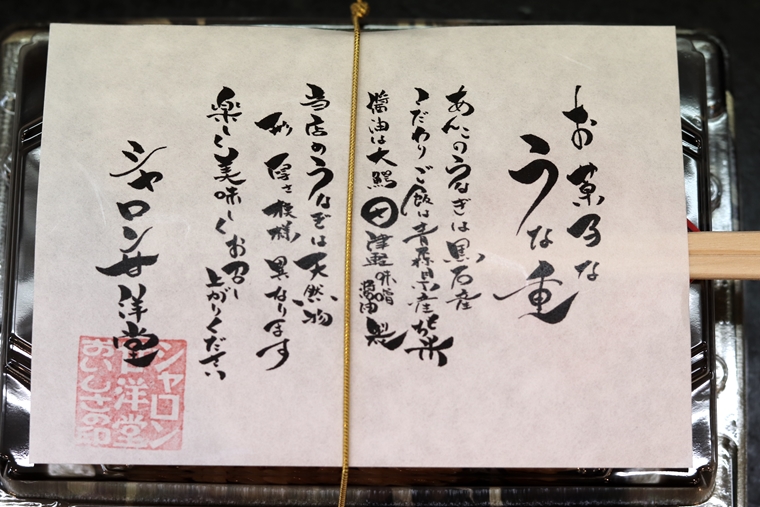 お菓乃な
うな重
あんこのうなぎは黒石産
こだわりご飯は青森県産もち米
醤油は大鰐㊉津軽味噌醤油製
当店のうなぎは天然物
形 厚さ 模様 異なります
楽しく美味しくお召し
上がりください
シャロン甘洋堂
シャロン
甘洋堂
おいしさの印